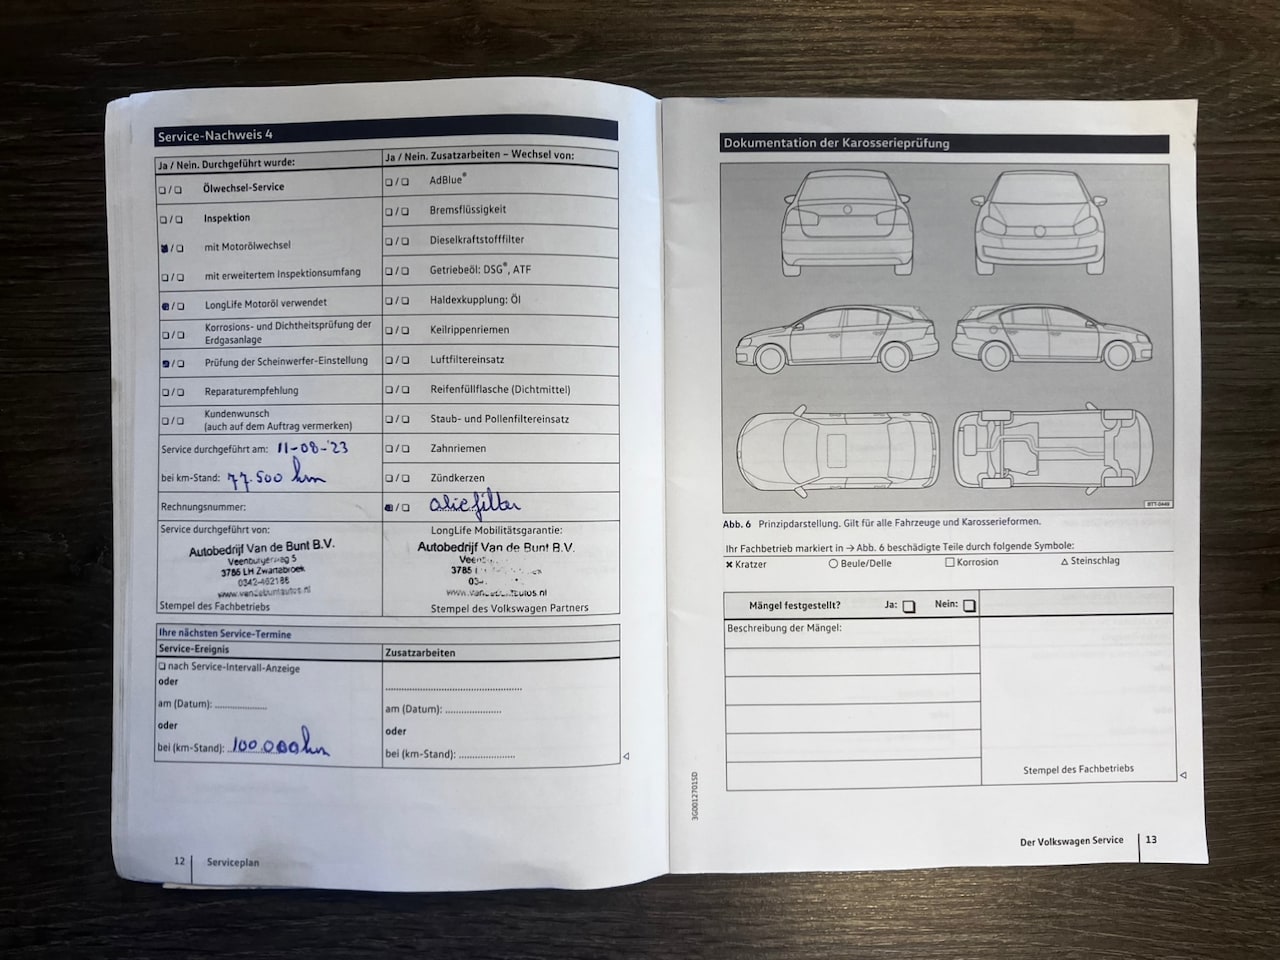 Service-Nachweis 4
Ja / Nein. Durchgeführt wurde:
❑ / ❑ Ölwechsel-Service
❑ / ❑ Inspektion
■ / ❑ mit Motorölwechsel
❑ / ❑ mit erweitertem Inspektionsumfang
■ / ❑ LongLife Motoröl verwendet
❑ / ❑ Korrosions- und Dichtheitsprüfung der
Erdgasanlage
■ / ❑ Prüfung der Scheinwerfer-Einstellung
❑ / ❑ Reparaturempfehlung
❑ / ❑ Kundenwunsch
(auch auf dem Auftrag vermerken)
Service durchgeführt am: 11-08-'23
bei km-Stand: 77.500 km
Rechnungsnummer:
Service durchgeführt von:
Autobedrijf Van de Bunt B.V.
3785 LH Zwartebroek
0342-462186
www.vandebuntautos.nl
Stempel des Fachbetriebs
Ja / Nein. Zusatzarbeiten – Wechsel von:
❑ / ❑ AdBlue®
❑ / ❑ Bremsflüssigkeit
❑ / ❑ Dieselkraftstofffilter
❑ / ❑ Getriebeöl: DSG®, ATF
❑ / ❑ Haldexkupplung: Öl
❑ / ❑ Keilrippenriemen
❑ / ❑ Luftfiltereinsatz
❑ / ❑ Reifenfüllflasche (Dichtmittel)
❑ / ❑ Staub- und Pollenfiltereinsatz
❑ / ❑ Zahnriemen
❑ / ❑ Zündkerzen
■ / ❑ oliefilter
LongLife Mobilitätsgarantie:
Autobedrijf Van de Bunt B.V.
3785
Stempel des Volkswagen Partners
Ihre nächsten Service-Termine
Service-Ereignis
❑ nach Service-Intervall-Anzeige
oder
am (Datum): ...................
oder
bei (km-Stand): 100.000 km
Zusatzarbeiten
..................................................
am (Datum): ....................
oder
bei (km-Stand): ....................
12 Serviceplan
Dokumentation der Karosserieprüfung
BTT-0449
Abb. 6 Prinzipdarstellung. Gilt für alle Fahrzeuge und Karosserieformen.
Ihr Fachbetrieb markiert in → Abb. 6 beschädigte Teile durch folgende Symbole:
✖ Kratzer ○ Beule/Delle □ Korrosion △ Steinschlag
Mängel festgestellt? Ja: ❑ Nein: ❑
Beschreibung der Mängel:
Stempel des Fachbetriebs
3G0012701SD
Der Volkswagen Service 13